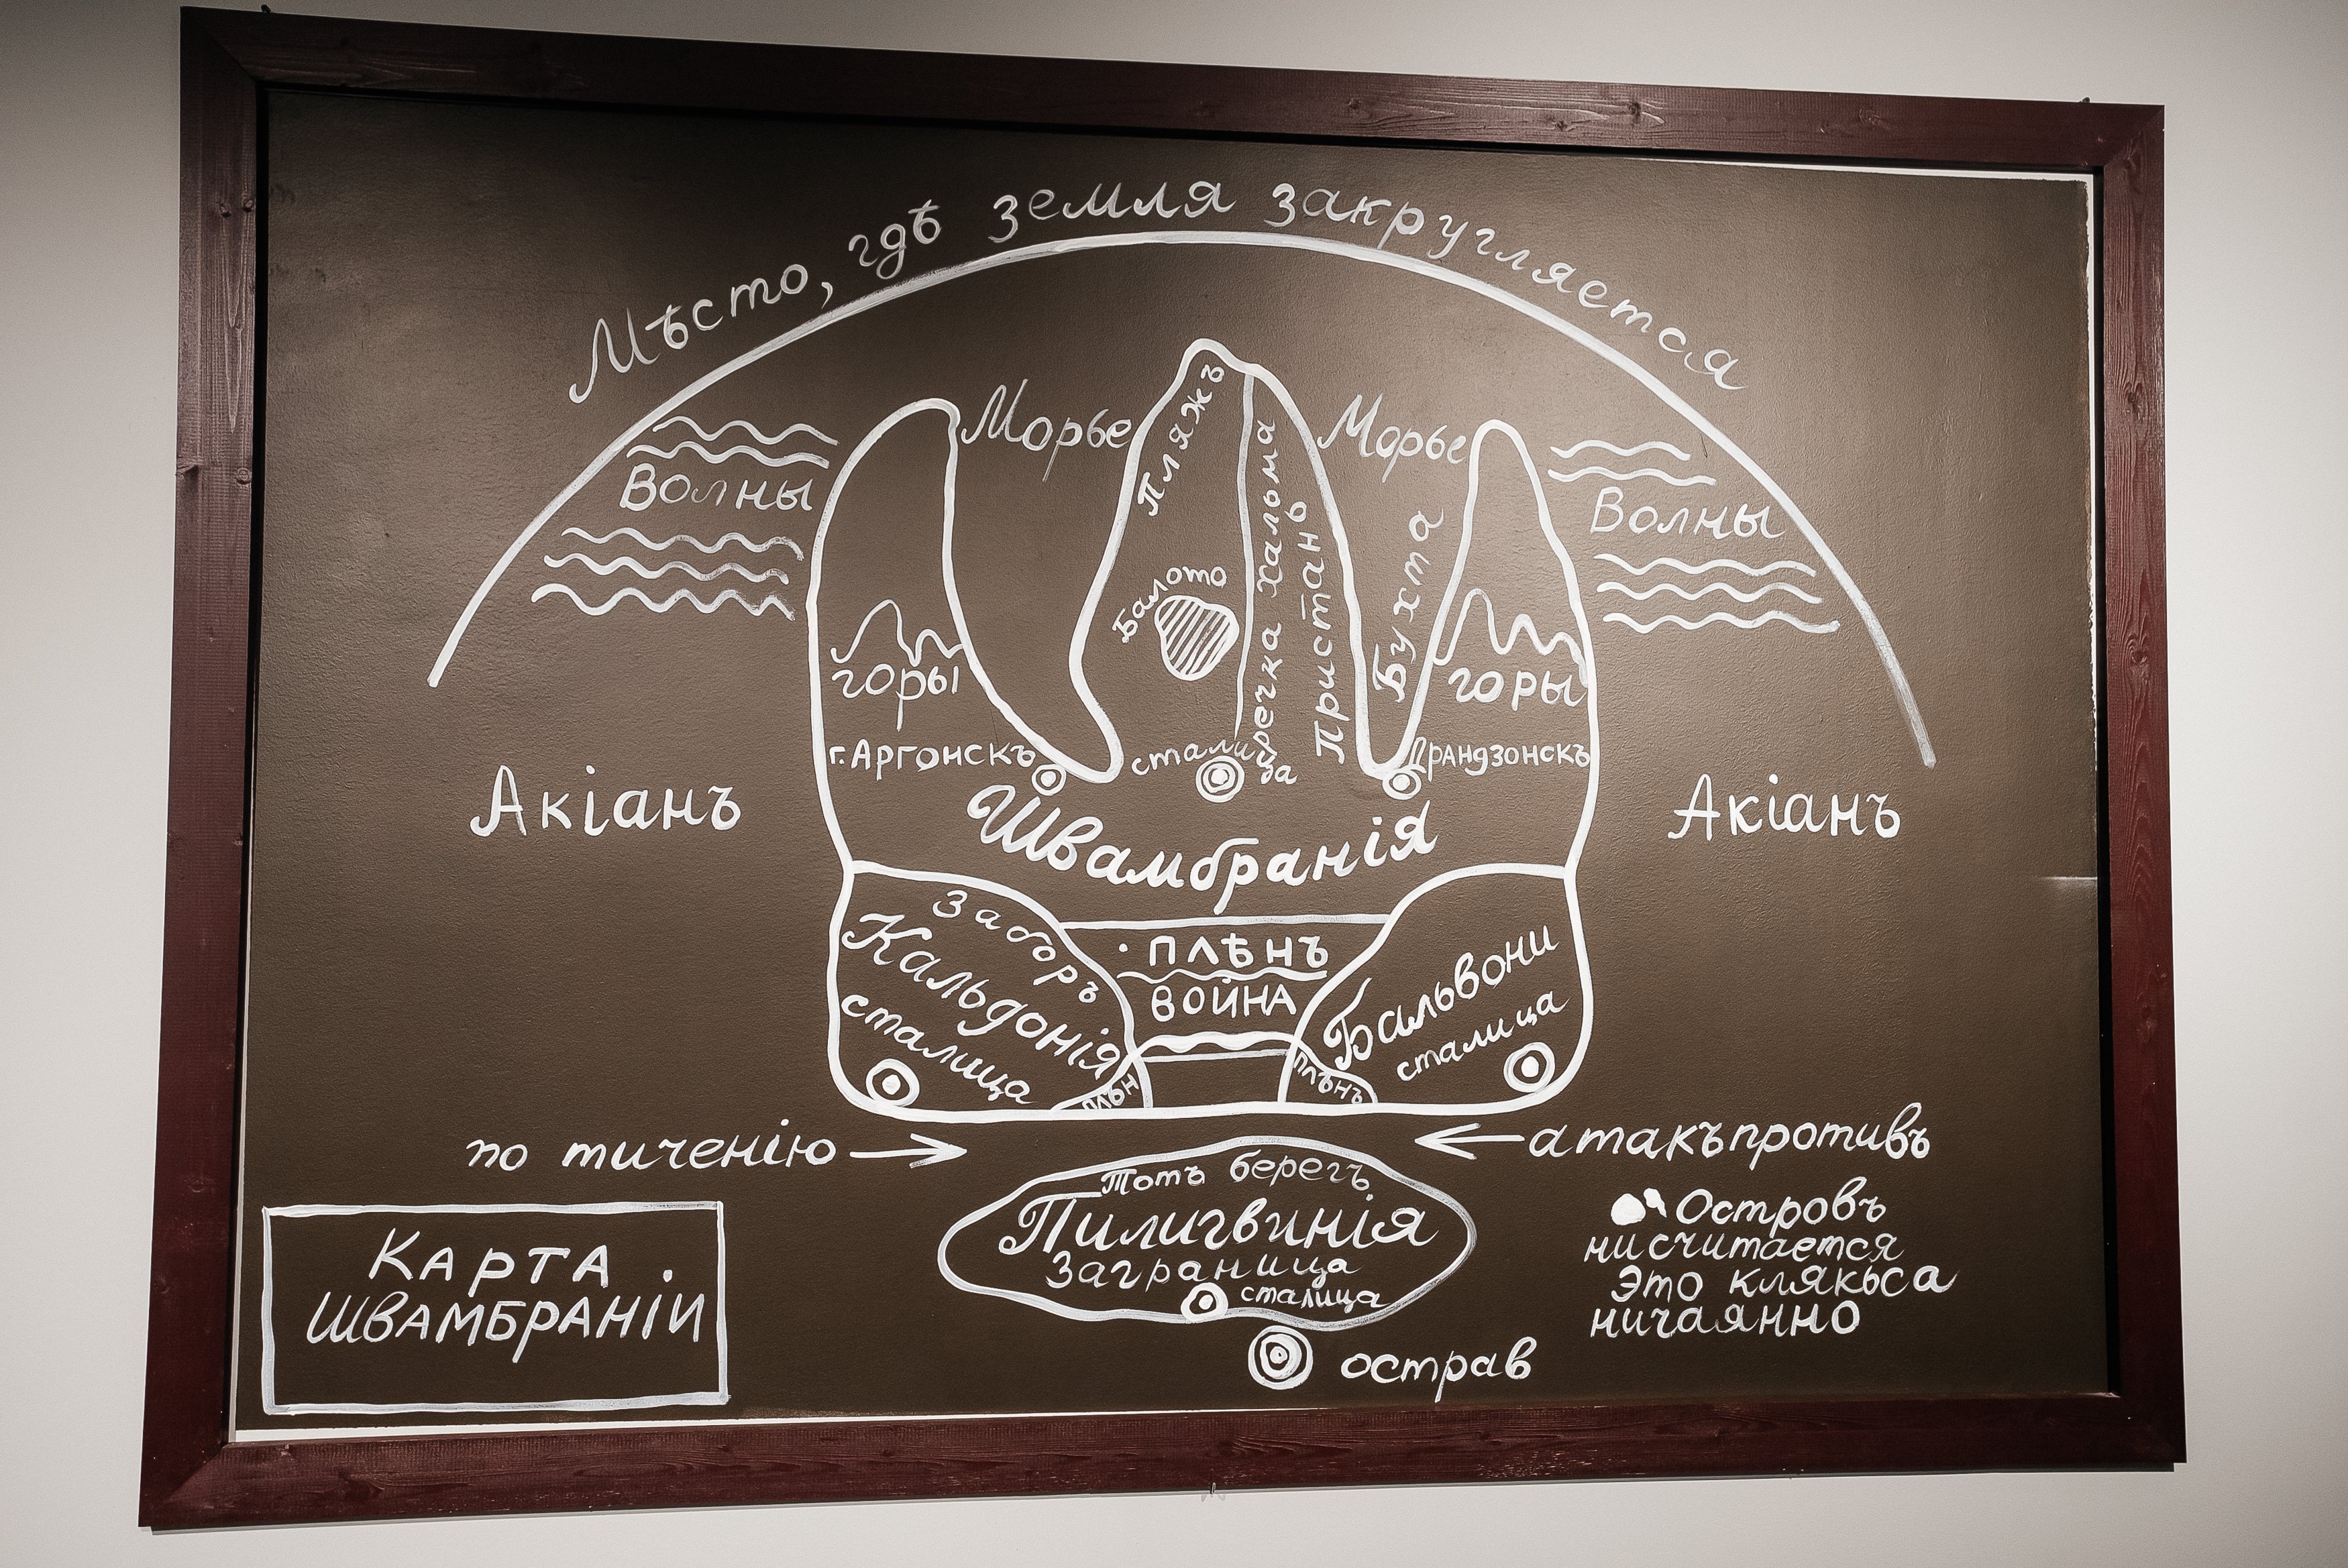 Мѣсто, гдѣ земля закругляется
Морье
Морье
Волны
Волны
Пляжъ
речка Хальма
Пристань
Бухта
Балото
горы
горы
г. Аргонскъ
сталица
Драндзонскъ
Акіанъ
Акіанъ
Швамбранія
Заборъ
Кальдонія
сталица
ПЛѢНЪ
ВОЙНА
Бальвони
сталица
плѣн
плѣнъ
по тиченію
атакъпротивъ
Тотъ берегъ
Пилигвинія
Заграница
сталица
острав
Островъ
нисчитается
Это клякьса
ничаянно
КАРТА
ШВАМБРАНІИ